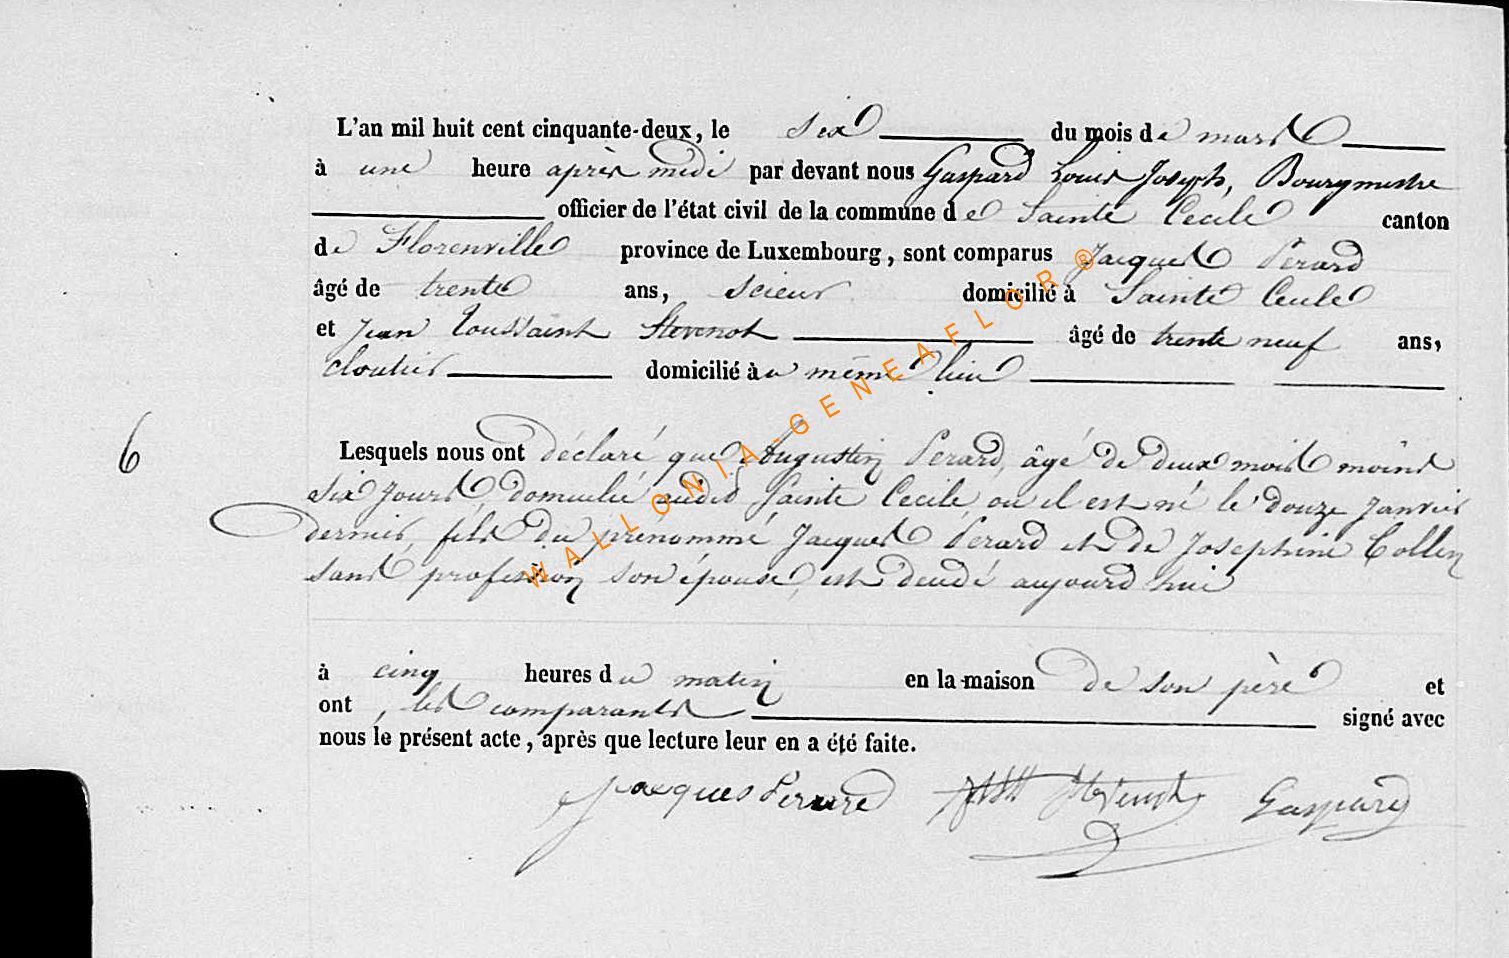 L'an mil huit cent cinquante-deux, le six du mois de mars
à une heure après midi par devant nous Gaspard Louis Joseph, Bourgmestre
officier de l'état civil de la commune de Sainte Cecile canton
de Florenville province de Luxembourg, sont comparus Jacques Perard
âgé de trente ans, scieur domicilié à Sainte Cecile
et Jean Toussaint Stevenot âgé de trente neuf ans,
cloutier domicilié au même lieu
6
Lesquels nous ont déclaré que Augustin Perard, âgé de deux mois moins
six jours domicilié audit Sainte Cecile, où il est né le douze Janvier
dernier, fils du prénommé Jacques Perard et de Josephine Collin
sans profession son épouse, est décédé aujourd'hui
à cinq heures du matin en la maison de son père et
ont, les comparants signé avec
nous le présent acte, après que lecture leur en a été faite.
Jacques Perard Stevenot Gaspard
WALLONIA-GENEAFLOR®